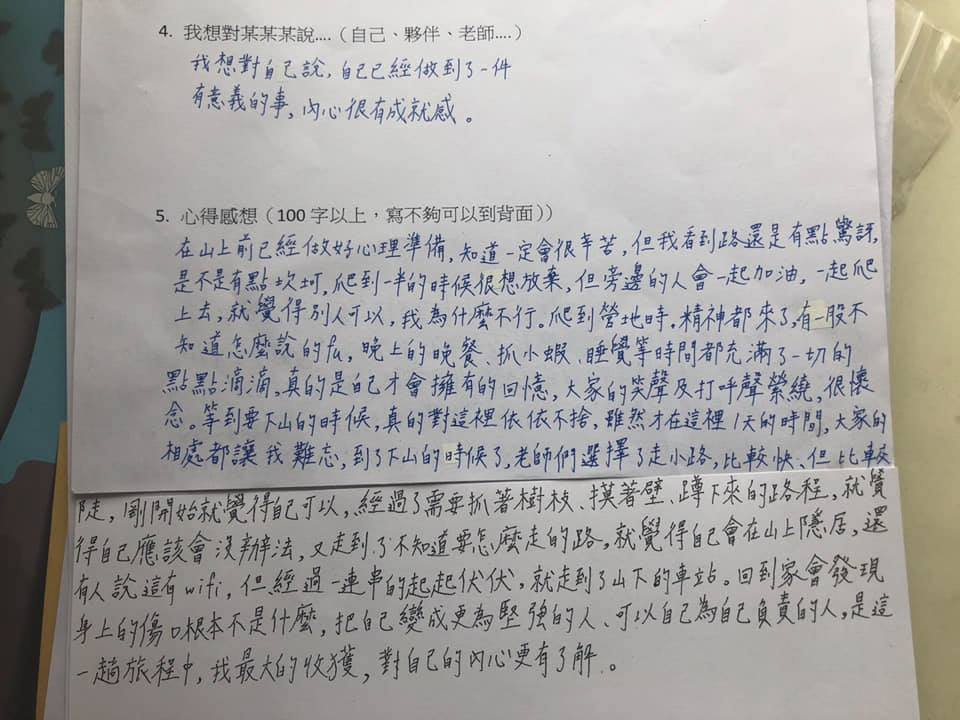 4. 我想對某某某說....（自己、夥伴、老師....）
我想對自己說，自己已經做到了一件
有意義的事，內心很有成就感。
5. 心得感想（100 字以上，寫不夠可以到背面））
在山上前已經做好心理準備，知道一定會很辛苦，但我看到路還是有點驚訝，
是不是有點坎坷，爬到一半的時候很想放棄，但旁邊的人會一起加油，一起爬
上去，就覺得別人可以，我為什麼不行。爬到營地時，精神都來了，有一股不
知道怎麼說的fu，晚上的晚餐、抓小蝦、睡覺等時間都充滿了一切的
點點滴滴，真的是自己才會擁有的回憶，大家的笑聲及打呼聲縈繞，很懷
念。等到要下山的時候，真的對這裡依依不捨，雖然才在這裡1天的時間，大家的
相處都讓我難忘，到了下山的時候了，老師們選擇了走小路，比較快、但比較
陡，剛開始就覺得自己可以，經過了需要抓著樹枝、摸著壁、蹲下來的路程，就覺
得自己應該會沒辦法，又走到了不知道要怎麼走的路，就覺得自己會在山上隱居，還
有人說這有wifi，但經過一連串的起起伏伏，就走到了山下的車站。回到家會發現
身上的傷口根本不是什麼，把自己變成更為堅強的人、可以自己為自己負責的人，是這
一趟旅程中，我最大的收獲，對自己的內心更有了解。